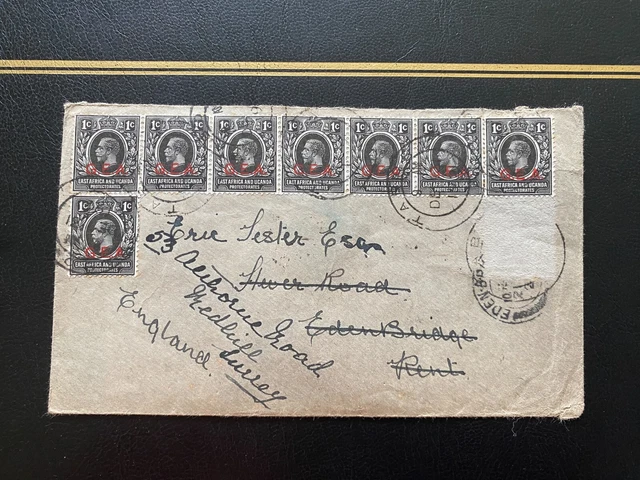 1c 1c 1c 1c 1c 1c 1c 1c 1c 1c 1c 1c 1c 1c
G.E.A. G.E.A. G.E.A. G.E.A. G.E.A. G.E.A. G.E.A.
EAST AFRICA AND UGANDA EAST AFRICA AND UGANDA EAST AFRICA AND UGANDA EAST AFRICA AND UGANDA EAST AFRICA AND UGANDA EAST AFRICA AND UGANDA EAST AFRICA AND UGANDA
PROTECTORATES PROTECTORATES PROTECTORATES PROTECTORATES PROTECTORATES PROTECTORATES PROTECTORATES
1c 1c
G.E.A.
EAST AFRICA AND UGANDA
PROTECTORATES
Eric Lester Esq
Hever Road
EdenBridge
Kent
53
Road
Redhill
Surrey
England
EDENB